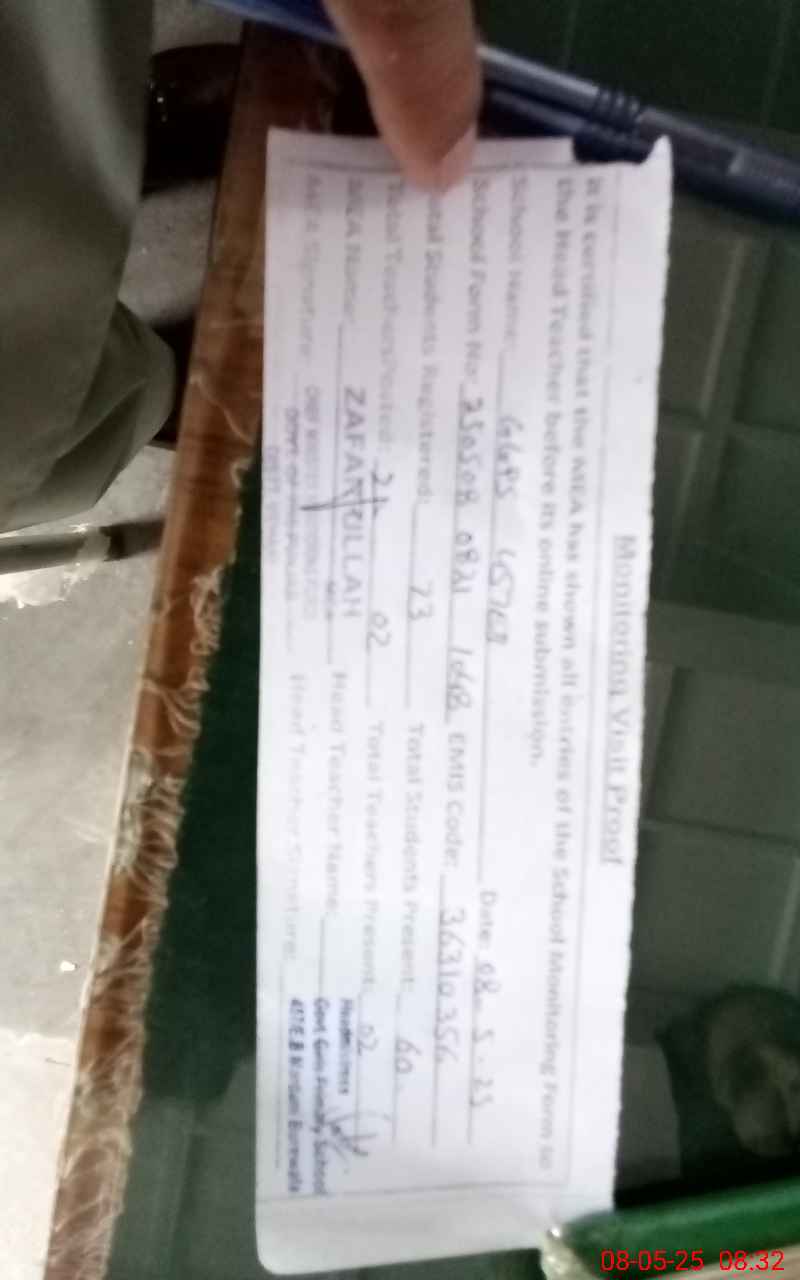 Monitoring Visit Proof
It is certified that the MEA has shown all entries of the School Monitoring Form to
the Head Teacher before its online submission.
School Name: GGPS Date: 08-5-25
School Form No: 250508 0821 EMIS Code: 36310356
Total Students Registered: 73 Total Students Present: 60
Total Teachers Posted: 02 Total Teachers Present: 02
MEA Name: ZAFAR ULLAH Head Teacher Name:
MEA Signature: Head Teacher Signature:
Headmistress
Govt. Girls Primary School
457/E.B
08-05-25 08:32